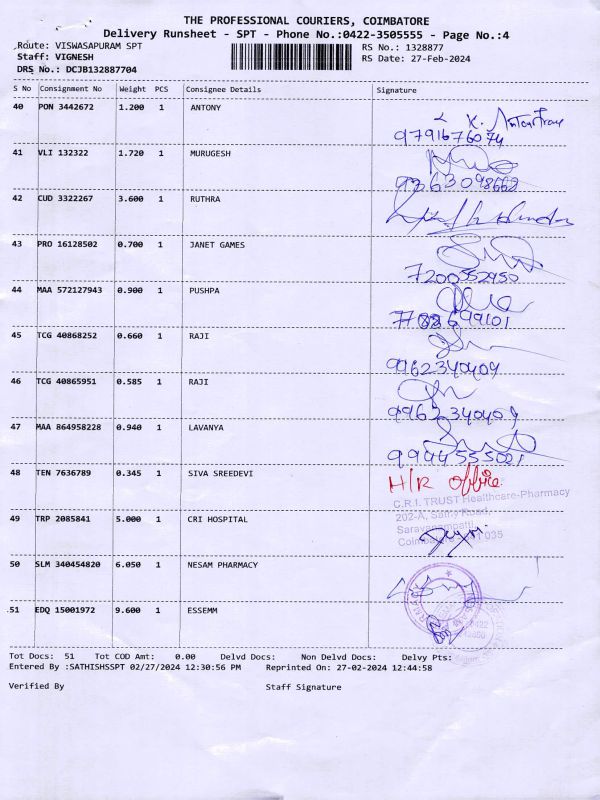 THE PROFESSIONAL COURIERS, COIMBATORE
Delivery Runsheet - SPT - Phone No.:0422-3505555 - Page No.:4
Route: VISWASAPURAM SPT RS No.: 1328877
Staff: VIGNESH RS Date: 27-Feb-2024
DRS No.: DCJB132887704
S No Consignment No Weight PCS Consignee Details Signature
40 PON 3442672 1.200 1 ANTONY
9791676074
41 VLI 132322 1.720 1 MURUGESH
42 CUD 3322267 3.600 1 RUTHRA
43 PRO 16128502 0.700 1 JANET GAMES
7200552950
44 MAA 572127943 0.900 1 PUSHPA
45 TCG 40868252 0.660 1 RAJI
9962340409
46 TCG 40865951 0.585 1 RAJI
9962340409
47 MAA 864958228 0.940 1 LAVANYA
9944555021
48 TEN 7636789 0.345 1 SIVA SREEDEVI
H/R office
C.R.I. TRUST Healthcare-Pharmacy
202-A, Sathy Road,
Saravanampatti,
49 TRP 2085841 5.000 1 CRI HOSPITAL
50 SLM 340454820 6.050 1 NESAM PHARMACY
51 EDQ 15001972 9.600 1 ESSEMM
Tot Docs: 51 Tot COD Amt: 0.00 Delvd Docs: Non Delvd Docs: Delvy Pts:
Entered By :SATHISHSSPT 02/27/2024 12:30:56 PM Reprinted On: 27-02-2024 12:44:58
Verified By Staff Signature